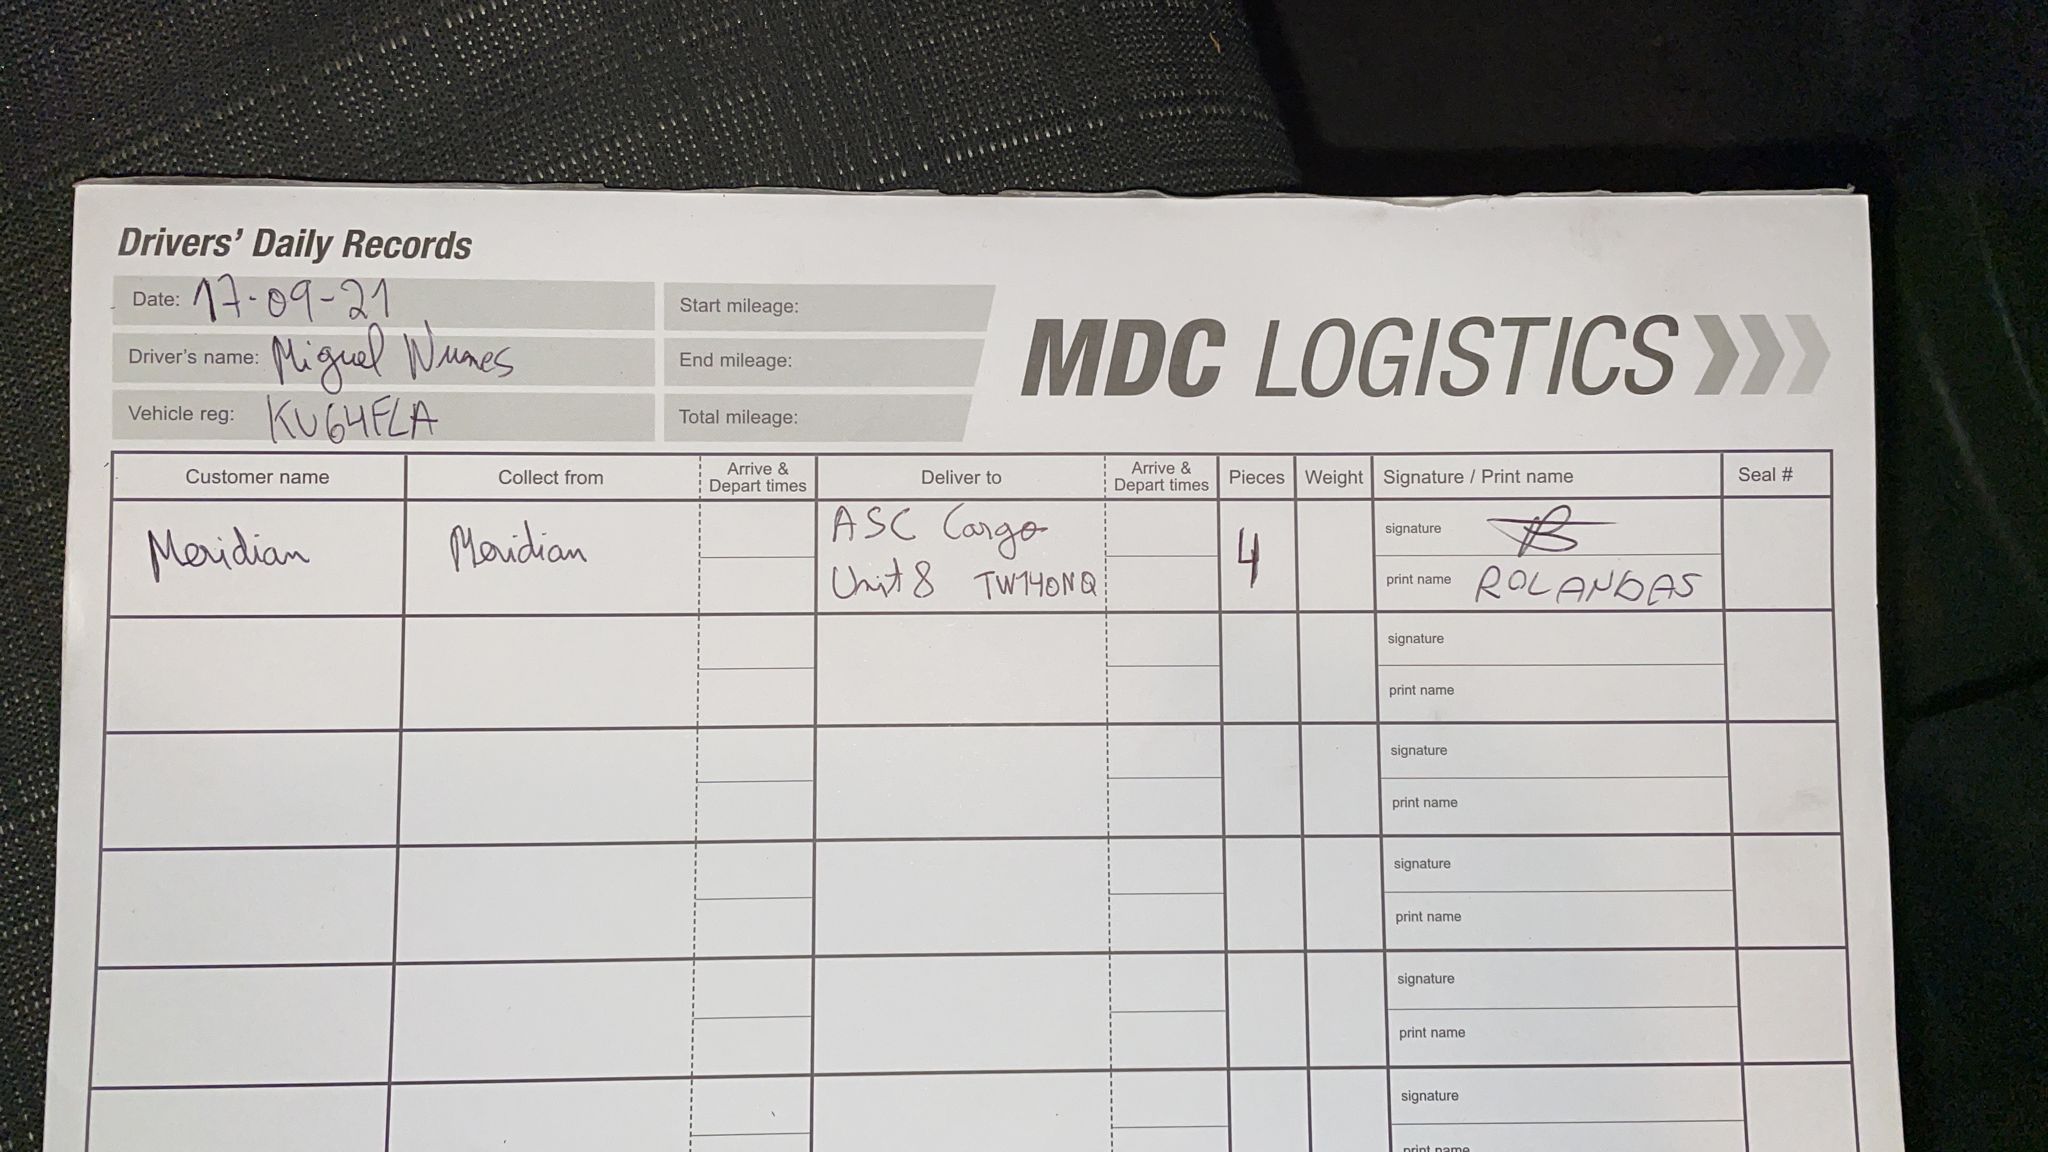 Drivers' Daily Records
Date: 17-09-21
Start mileage:
Driver's name: Miguel Nunes
End mileage:
Vehicle reg: KU64FLA
Total mileage:
MDC LOGISTICS
Customer name
Collect from
Arrive &
Depart times
Deliver to
Arrive &
Depart times
Pieces
Weight
Signature / Print name
Seal #
Meridian
Meridian
ASC Cargo
Unit 8 TW140NQ
4
signature
print name ROLANDAS
signature
print name
signature
print name
signature
print name
signature
print name
signature
print name